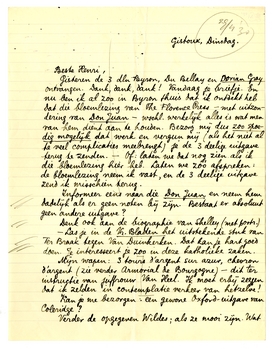 Gistoux, Dinsdag.
Beste Henri,
Gisteren de 3 dln Byron, Du Hallay en Dorian Gray
ontvangen. Dank, dank, dank! Vandaag je briefje. En
nu den ik al zoo in Byron thuis dat ik ontdekt heb
dat die bloemlezing van The Florence Press – met uitzon-
dering van Don Juan – werkelijk alles is wat men
van hem dient aan te houden. Bezorg mij dus zoo spoe-
dig mogelijk dat werk en vergun mij (als het niet al
te veel complicaties meebrengt) je de 3 deelige uitgaaf
terug te zenden. – Of: laten we het nog zien als ik
die bloemlezing hier heb. Laten we zoo afspreken:
de bloemlezing neem ik vast, en de 3 deelige uitgaaf
zend ik misschien terug.
Informeer eens naar die Don Juan, en neem hem
dadelijk als er geen noten bij zijn. Bestaat er absoluut
geen andere uitgaaf?
Denk ook aan de biographie van Shelley (met portr.)
– Las je in de Vr. Bladen het uitstekende stuk van
Ter Braak tegen Van Duinkerken. Dat kan je goed
doen. Ik interesseer je zoo in deze katholieke zaken.
Mijn wapen: 3 tours d'argent sur azur, chevron
d'argent (zie verder Armorial de Bourgogne) – dit ter
instructie van juffrouw Van Heel. Ik moet erbij zeggen
dat ik zelden in contemplatie verkeer van hetzelve!
Kan je me bezorgen: een gewone Oxford-uitgave van
Coleridge?
Verder de opgegeven Wildes; als ze mooi zijn. Wat